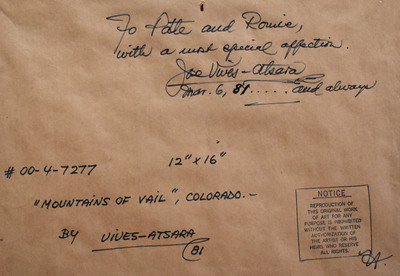 To Pate and Ronnie,
with a most special affection.
Joe Vives-Atsara
Mar. 6, 81..... and always
12" x 16"
# 00-4-7277
"MOUNTAINS OF VAIL", COLORADO.-
BY VIVES-ATSARA
81
NOTICE
REPRODUCTION OF
THIS ORIGINAL WORK
OF ART FOR ANY
PURPOSE IS PROHIBITED
WITHOUT THE WRITTEN
AUTHORIZATION OF
THE ARTIST OR HIS
HEIRS WHO RESERVE
ALL RIGHTS.